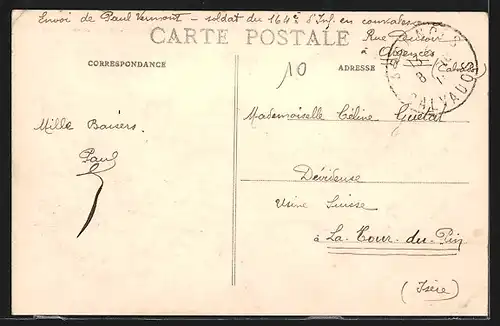 Envoi de Paul Vermont - soldat du 164e d'Inf. en convalescence
Rue
CARTE POSTALE
à
(Calvados)
CORRESPONDANCE
ADRESSE
10
CALVADOS
Mademoiselle Céline Guetat
Mille Baisers.
Paul
Dévideuse
Usine Suisse
à La-Tour-du-Pin
(Isère)